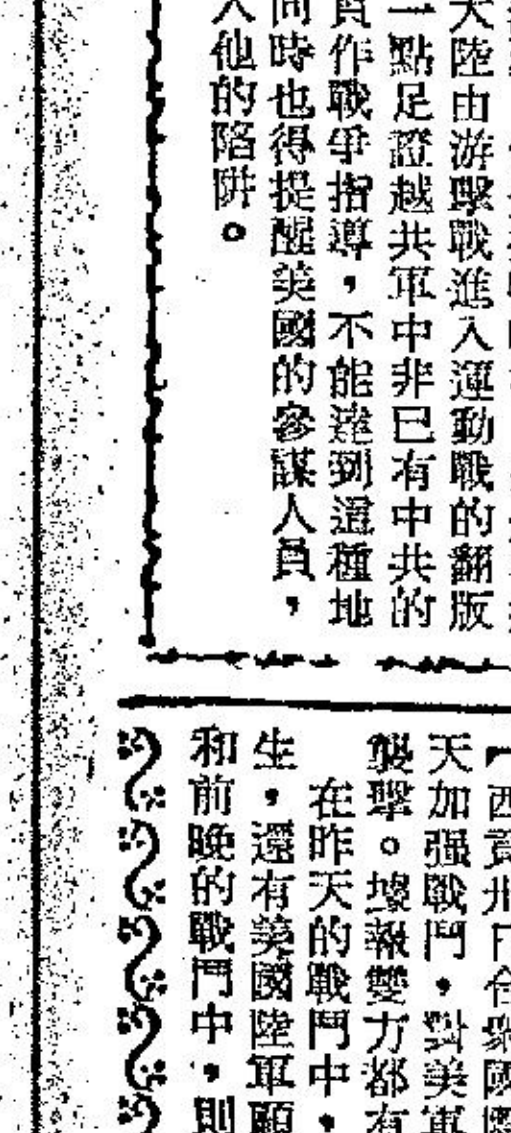 大陸由游擊戰進入運動戰的翻版
一點足證越共軍中非已有中共的
員作戰爭指導，不能達到這種地
同時也得提醒美國的參謀人員，
入他的陷阱。
「西貢
天加强戰鬥，對美軍
襲擊。據報雙方都有
在昨天的戰鬥中，
生，還有美國陸軍顧
和前晚的戰鬥中，則